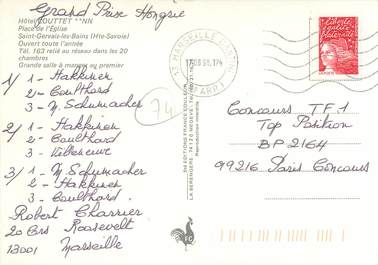 Grand Prise Hongrie
Hôtel COUTTET **NN
Place de l'Église
Saint-Gervais-les-Bains (Hte-Savoie)
Ouvert toute l'année
Tél. 163 relié au réseau dans les 20
chambres
Grande salle à manger au premier
1/ 1 - Hakkinen
2 - Coulthard
3 - M. Schumacher
2/ 1 - Hakkinen
2 - Coulthard
3 - Villeneuve
3/ 1 - M. Schumacher
2 - Hakkinen
3 - Coulthard
Robert Charrier
20 Crs Roosevelt
13001 Marseille
74
13 MARSEILLE
Reproduction interdite
Liberté
égalité
Fraternité
Concours TF.1
Top Pôsition
BP 2164
99216 Paris Concours